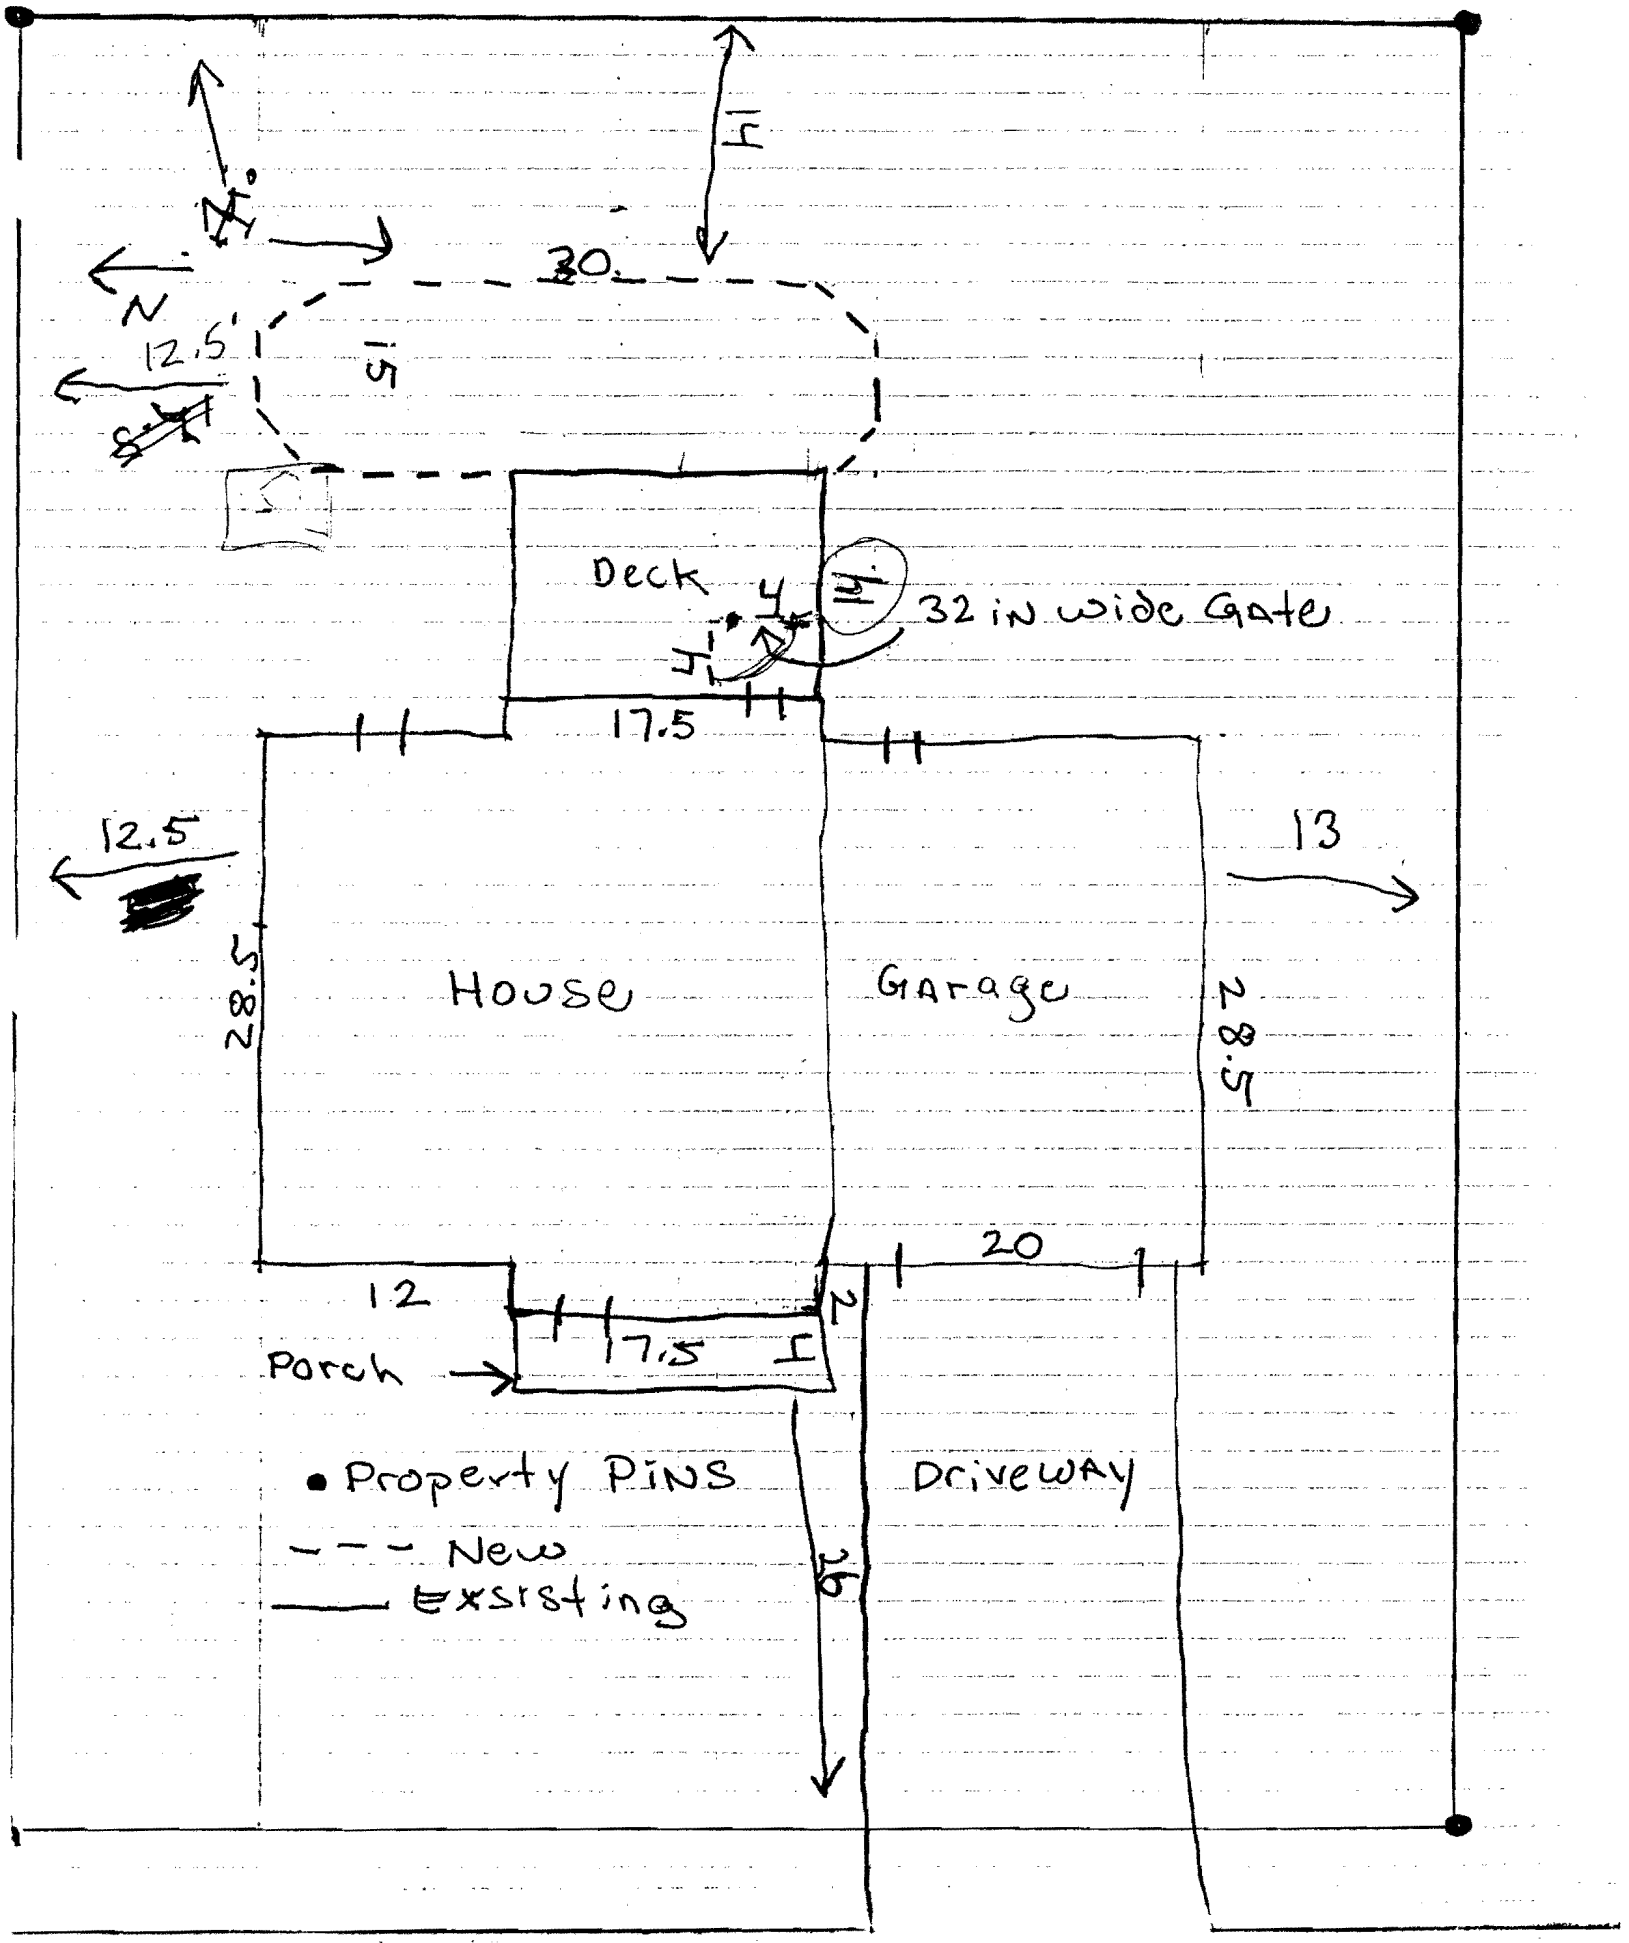 14
30
N
12.5'
15
Deck
4
14
32 iN wide GAte
4
17.5
12.5
13
28.5
House
GArage
28.5
20
12
2
17.5
4
Porch
Property PiNS
DrivewAy
New
26
Exsisting